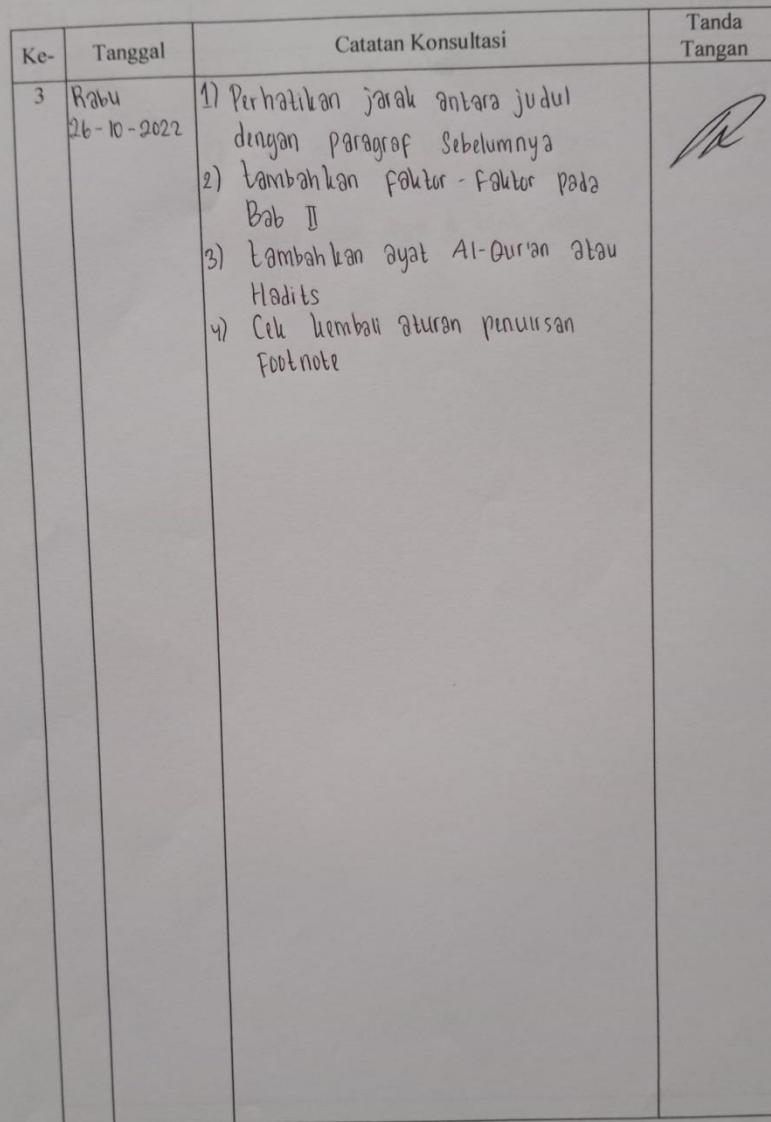 Ke- Tanggal Catatan Konsultasi Tanda Tangan
3 Rabu 1) Perhatikan jarak antara judul
26-10-2022 dengan paragraf Sebelumnya
2) tambahkan Faktor-Faktor pada
Bab II
3) tambahkan ayat Al-Qur'an atau
Hadits
4) Cek kembali aturan penulisan
Footnote